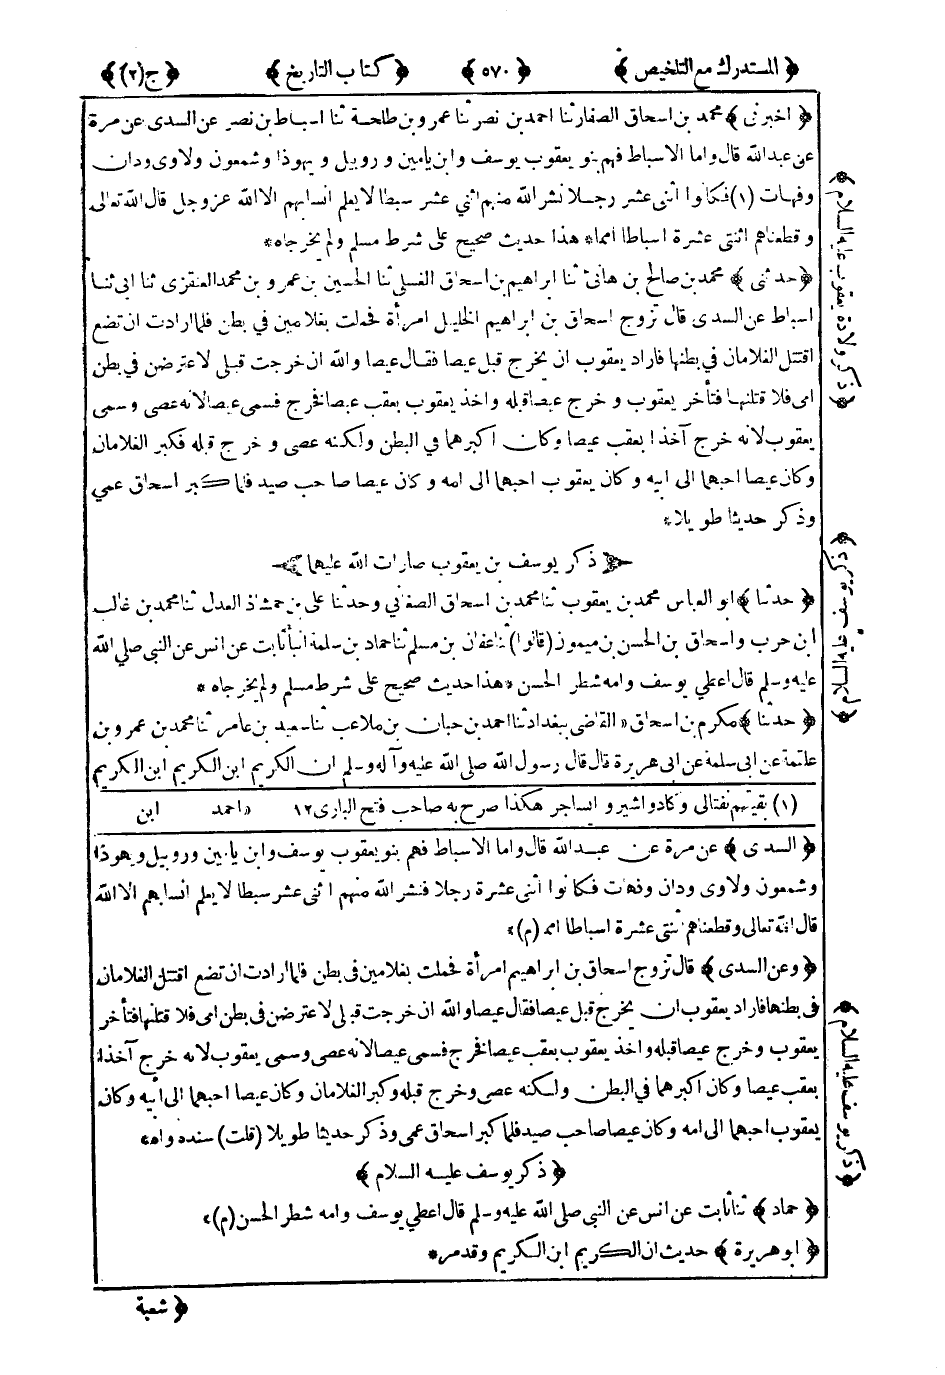 ﴿ المستدرك مع التلخيص ﴾ ﴿ ٥٧٠ ﴾ ﴿ كتاب التاريخ ﴾ ﴿ ج (٢) ﴾
﴿ اخبرني ﴾ محمد بن اسحاق الصفار ثنا احمد بن نصر ثنا عمرو بن طلحة ثنا اسباط بن نصر عن السدى عن مرة
عن عبد الله قال واما الاسباط فهم بنو يعقوب يوسف وابن يامين و روبيل و يهوذا و شمعون و لاوى ودان
وفهات (١) فكانوا اثنى عشر رجلا نشر الله منهم اثنى عشر سبطا لا يعلم انسابهم الا الله عز وجل قال الله تعالى
و قطعناهم اثنتى عشرة اسباطا امما* هذا حديث صحيح على شرط مسلم ولم يخرجاه*
﴿ حدثنى ﴾ محمد بن صالح بن هانئ ثنا ابراهيم بن اسحاق الغسلى ثنا الحسين بن عمرو بن محمد العنقزى ثنا ابى ثنا
اسباط عن السدى قال تزوج اسحاق بن ابراهيم الخليل امرأة فحملت بغلامين في بطن فلما ارادت ان تضع
اقتتل الغلامان في بطنها فاراد يعقوب ان يخرج قبل عيصا فقال عيصا والله ان خرجت قبلى لاعترضن في بطن
امى فلا قتلنها فتأخر يعقوب و خرج عيصا قبله واخذ يعقوب بعقب عيصا فخرج فسمى عيصا لانه عصى وسمى
يعقوب لانه خرج آخذا بعقب عيصا وكان اكبرهما في البطن ولكنه عصى و خرج قبله فكبر الغلامان
وكان عيصا احبهما الى ابيه وكان يعقوب احبهما الى امه وكان عيصا صاحب صيد فلما كبر اسحاق عمي
وذكر حديثا طويلا*
ذكر يوسف بن يعقوب صلوات الله عليهما
﴿ حدثنا ﴾ ابو العباس محمد بن يعقوب ثنا محمد بن اسحاق الصغاني وحدثنا على بن حمشاذ العدل ثنا محمد بن غالب
ابن حرب واسحاق بن الحسن بن ميمون (قالوا) ثنا عفان بن مسلم ثنا حماد بن سلمة انبأ ثابت عن انس عن النبي صلى الله
عليه وسلم قال اعطي يوسف وامه شطر الحسن * هذا حديث صحيح على شرط مسلم ولم يخرجاه *
﴿ حدثنا ﴾ مكرم بن اسحاق * القاضى ببغداد ثنا احمد بن حبان بن ملاعب ثنا سعيد بن عامر ثنا محمد بن عمرو بن
علقمة عن ابى سلمة عن ابى هريرة قال قال رسول الله صلى الله عليه وآله وسلم ان الكريم ابن الكريم ابن الكريم
(١) بقيتهم نفتالى وكادو اشير و ايساجر هكذا صرح به صاحب فتح البارى ١٢ * احمد ابن
﴿ السدى ﴾ عن مرة عن عبد الله قال واما الاسباط فهم بنو يعقوب يوسف وابن يامين وروبيل ويهوذا
وشمعون ولاوى ودان وفهات فكانوا اثنى عشرة رجلا فنشر الله منهم اثنى عشر سبطا لا يعلم انسابهم الا الله
قال الله تعالى وقطعناهم اثنتى عشرة اسباطا امما (م)*
﴿ وعن السدى ﴾ قال تزوج اسحاق بن ابراهيم امرأة فحملت بغلامين فى بطن فلما ارادت ان تضع اقتتل الغلامان
فى بطنها فاراد يعقوب ان يخرج قبل عيصا فقال عيصا والله ان خرجت قبلى لاعترضن فى بطن امى فلا قتلنها فتأخر
يعقوب وخرج عيصا قبله واخذ يعقوب بعقب عيصا فخرج فسمى عيصا لانه عصى وسمى يعقوب لانه خرج آخذا
بعقب عيصا وكان اكبرهما في البطن ولكنه عصى وخرج قبله وكبر الغلامان وكان عيصا احبهما الى أبيه وكان
يعقوب احبهما الى امه وكان عيصا صاحب صيد فلما كبر اسحاق عمى وذكر حديثا طويلا (قلت) سنده واه*
﴿ ذكر يوسف عليه السلام ﴾
﴿ حماد ﴾ ثنا ثابت عن انس عن النبي صلى الله عليه وسلم قال اعطي يوسف وامه شطر الحسن (م)*
﴿ ابو هريرة ﴾ حديث ان الكريم ابن الكريم وقد مر*
﴿ شعبة
﴿ ذكر ولادة يعقوب عليه السلام ﴾
﴿ ذكر يوسف عليه السلام ﴾